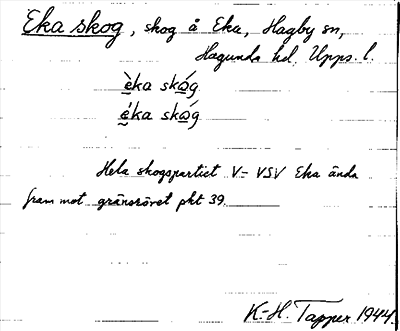 Eka skog, skog å Eka, Hagby sn,
Hagunda hd. Upps. l.
èka skóg
éka skóg
Hela skogspartiet V– VSV Eka ända
fram mot gränsröset pkt 39.
K.-H. Tapper 1944.